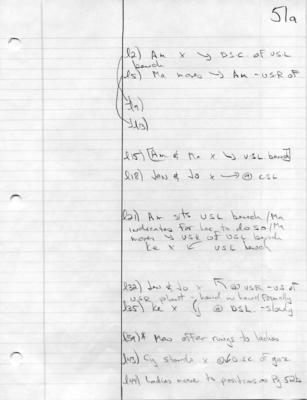 51a
l2) Am x ↘ DSC. of USL
bench
l5) Ma moves ↘ Am - USR of
l9)
l13)
l15) [Am & Ma x ↘ USL bench]
l18) Jew & Jo x → @ CSL
l21) Am sits USL bench / Ma
indicates for her to do so / Ma
moves ↘ USR of USL bench
Ke x ↙ USL bench
l32) Jew & Jo x ↖ @ USR - US of
USR plant - hand in hand / formally
l35) Ke x @ DSL - slowly
l39) Mao offer rings to ladies
l43) Cy stands x @ 6 DSC of gaz
l44) Ladies move to positions as Pg 50a